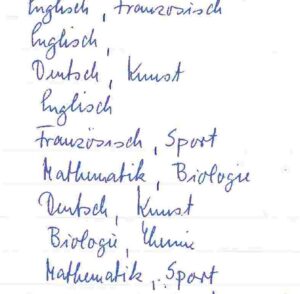 Englisch, Französisch
Englisch,
Deutsch, Kunst
Englisch
Französisch, Sport
Mathematik, Biologie
Deutsch, Kunst
Biologie, Chemie
Mathematik, Sport